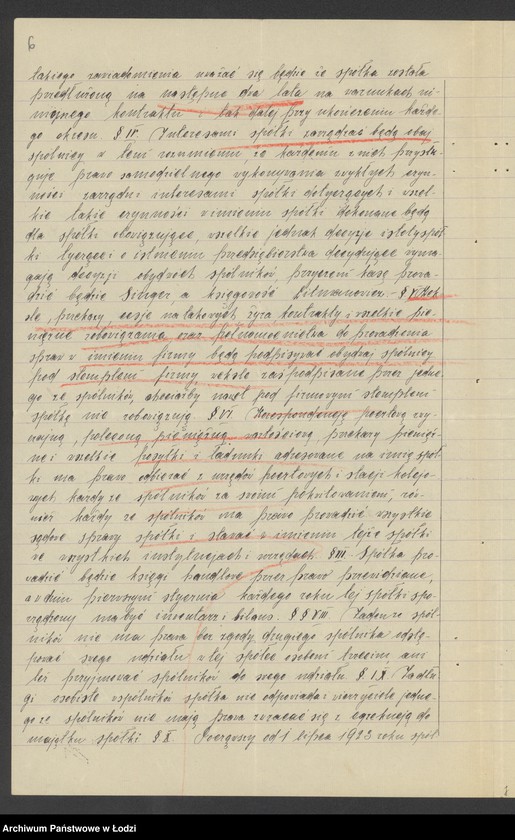 6
takiego zawiadomienia uważać się będzie że spółka została
przedłużoną na następne dwa lata na warunkach ni-
niejszego kontraktu i tak dalej przy ukończeniu każde-
go okresu. § IV. Interesami spółki zarządzać będą obaj
spólnicy w tem rozumieniu, że każdemu z nich przysłu-
guje prawo samodzielnego wykonywania zwykłych czyn-
ności zarządu interesami spółki dotyczących i wszel-
kie takie czynności w imieniu spółki dokonane będą
dla spółki obowiązujące, wszelkie jednak decyzje istoty spół-
ki tyczące i o istnieniu przedsiębiorstwa decydujące wyma-
gają decyzji obydwóch spólników przyczem kasę prowa-
dzić będzie Singer, a księgowość Litmanowicz. § V. Wek-
sle, przekazy, cesje na takowych, żyra kontrakty i wszelkie pie-
niężne zobowiązania oraz pełnomocnictwa do prowadzenia
spraw w imieniu firmy będą podpisywać obydwaj spólnicy
pod stemplem firmy, weksle zaś podpisane przez jedne-
go ze spólników, chociażby nawet pod firmowym stemplem
spółkę nie zobowiązują. § VI Korespondencję pocztową zwy-
czajną, poleconą pieniężną wartościową, przekazy pienięż-
ne i wszelkie posyłki i ładunki adresowane na imię spół-
ki ma prawo odbierać z urzędów pocztowych i stacji kolejo-
wych każdy ze spólników za swoim pokwitowaniem, rów-
nież każdy ze spólników ma prawo prowadzić wszystkie
sądowe sprawy spółki i stawać w imieniu tejże spółki
we wszystkich instytucjach i urzędach. § VII. Spółka pro-
wadzić będzie księgi handlowe przez prawo przewidziane,
a w dniu pierwszym stycznia każdego roku tej spółki spo-
rządzony ma być inwentarz i bilans. § § VIII Żaden ze spól-
ników nie ma prawa bez zgody drugiego spólnika odstę-
pować swego udziału w tej spółce osobom trzecim ani
też przyjmować spólników do swego udziału. § IX. Za dłu-
gi osobiste spólników spółka nie odpowiada i wierzyciele jedne-
go ze spólników nie mają prawa zwracać się z egzekucją do
majątku spółki § X. Począwszy od 1 lipca 1923 roku spól-
Archiwum Państwowe w Łodzi